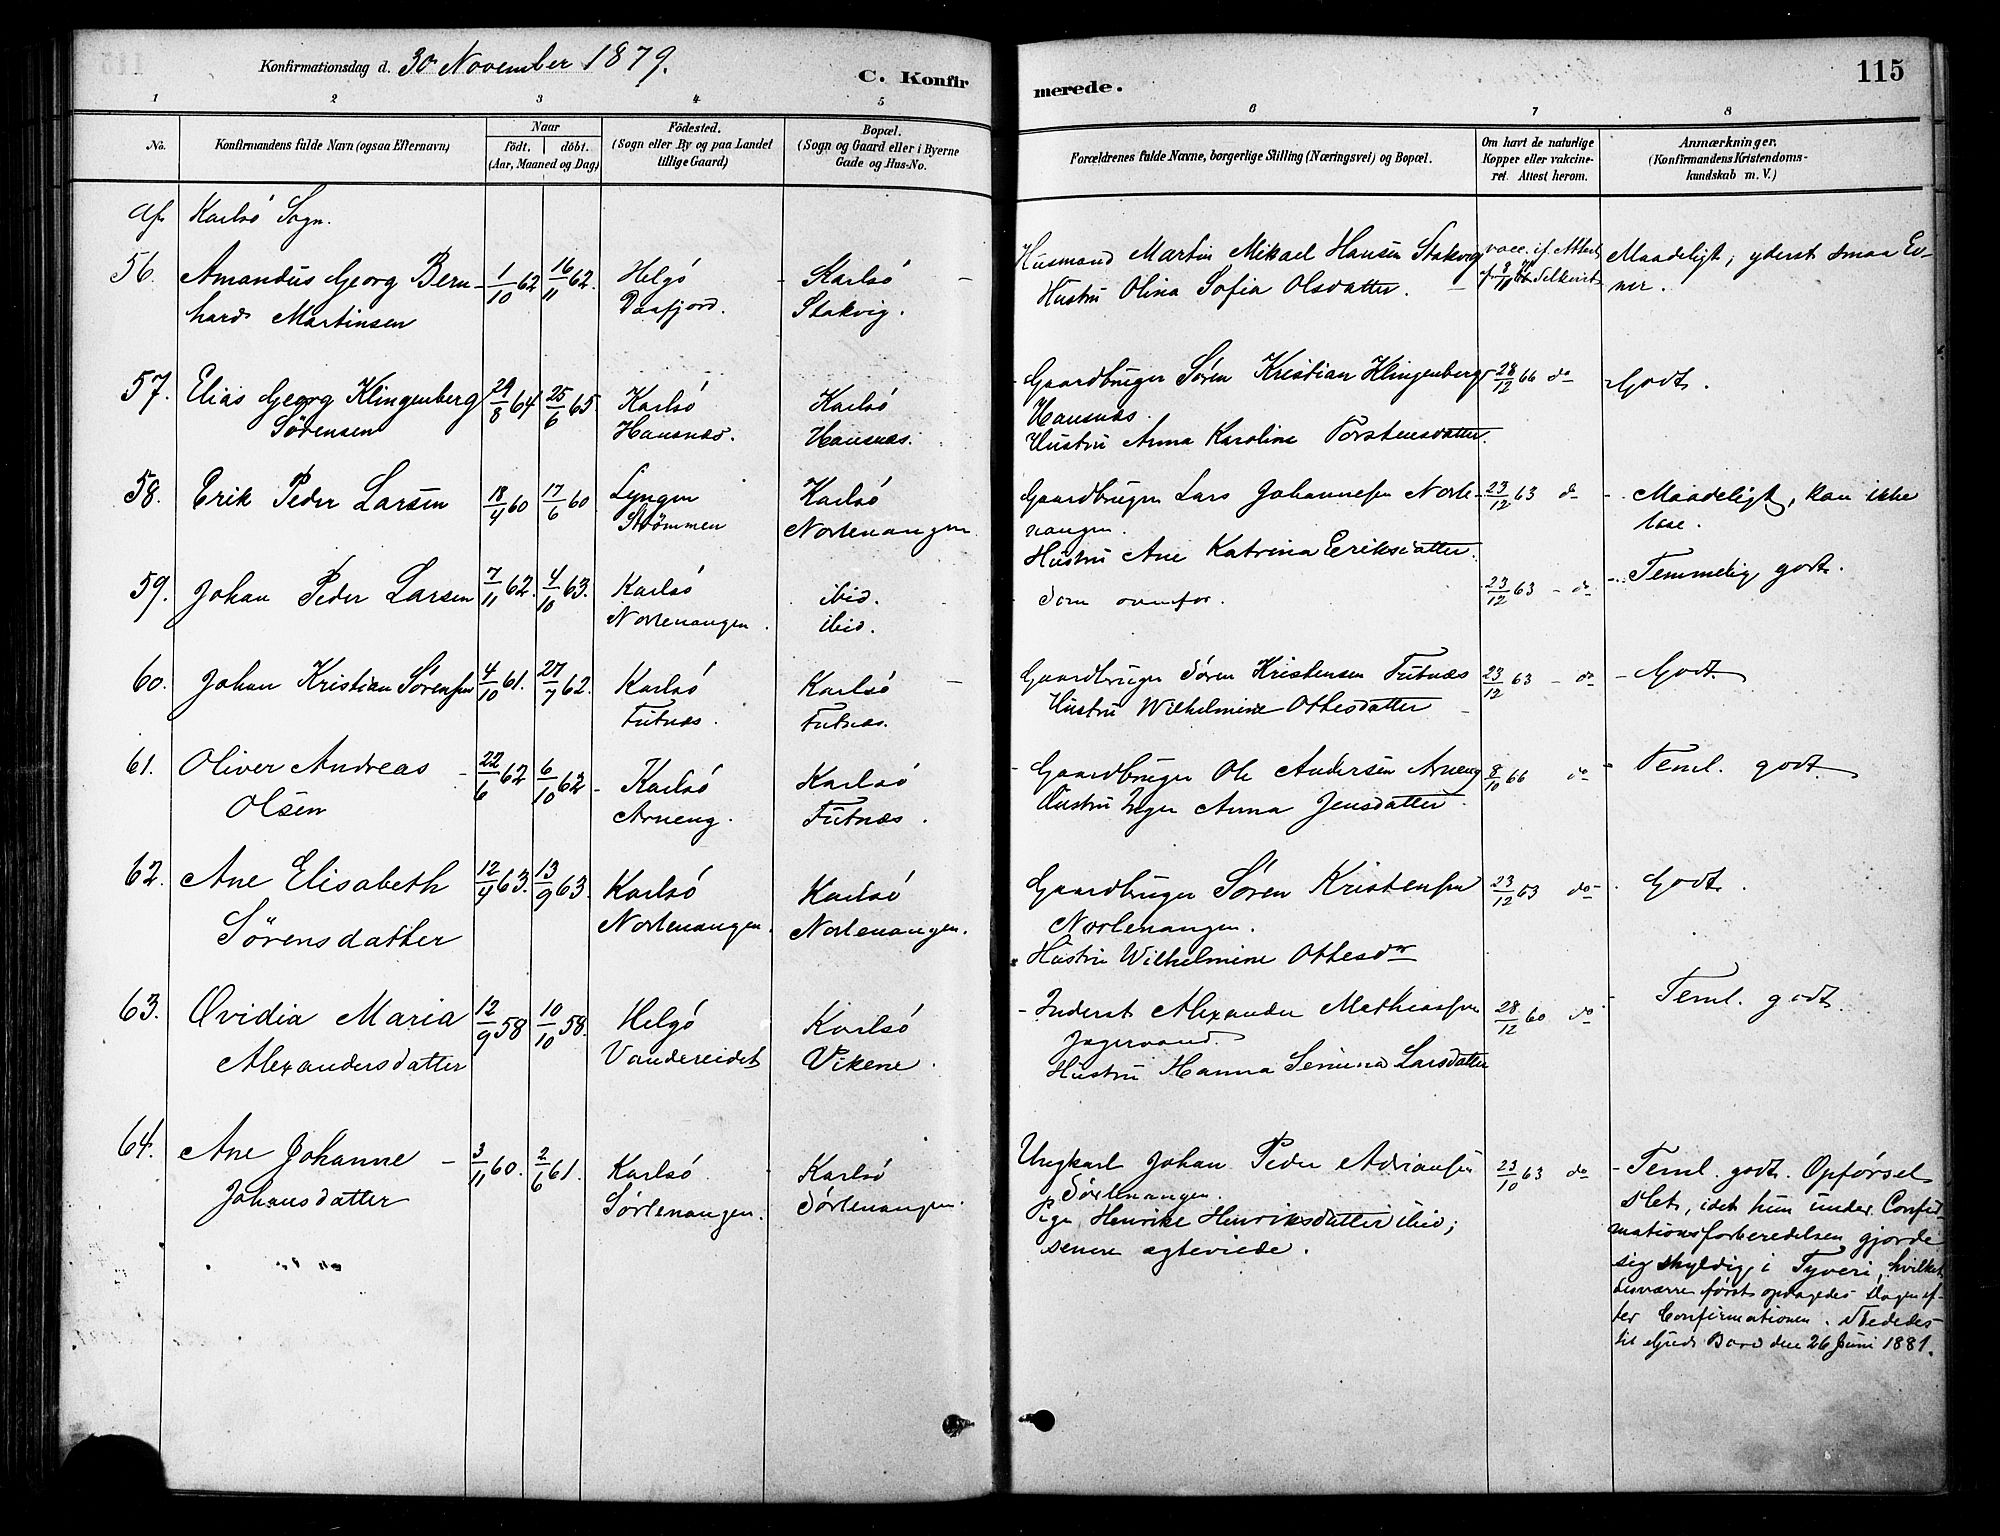 Konfirmationsdag d. 30 November 1879.
C. Konfir
merede.
115
1 2 3 4 5
6 7 8
No.
Konfirmandens fulde Navn (ogsaa Efternavn)
Naar
födt. döbt.
(Aar, Maaned og Dag)
Födested.
(Sogn eller By og paa Landet
tillige Gaard)
Bopæl.
(Sogn og Gaard eller i Byerne
Gade og Hus-No.
Forældrenes fulde Navne, borgerlige Stilling (Næringsvei) og Bopæl.
Om havt de naturlige
Kopper eller vakcine-
ret. Attest herom.
Anmærkninger.
(Konfirmandens Kristendoms-
kundskab m. V.)
Af Karlsö Sogn.
56. Amandus Georg Bern- 1/10 62 16/11 62. Helgö - Karlsö
hard Martinsen Daafjord. Stakvig.
Husmand Martin Mikael Hansen Stakvig vacc. if. Attest Maadeligt, yderst smaa Ev-
Hustru Olina Sofia Olsdatter. ner.
57. Elias Georg Klingenberg 29/8 64 25/6 65. Karlsö Karlsö
Sörensen Hansnæs. Hansnæs.
Gaardbruger Sören Kristian Klingenberg 28/12 66 do Godt.
Hansnæs.
Hustru Anna Karoline Torstensdatter.
58. Erik Peder Larsen 18/4 60 17/6 60. Lyngen Karlsö
Strömmen Nortenangen
Gaardbruger Lars Johannesen Norte- 23/12 63 do - Maadeligt, kan ikke
nangen. læse.
Hustru Ane Katrina Eriksdatter.
59. Johan Peder Larsen 7/11 62. 4/10 63. Karlsö ibid.
Nortenangen. ibid.
Som ovenfor. 23/12 63 - do - Temmelig godt.
60. Johan Kristian Sörensen 4/10 61. 27/7 62. Karlsö Karlsö
Futnæs. Futnæs.
Gaardbruger Sören Kristensen Futnæs 23/12 63 - do - Godt.
Hustru Wilhelmine Ottesdatter
61. Oliver Andreas - 22/6 62 6/10 62 - Karlsö Karlsö
Olsen Arneng. Futnæs.
- Gaardbruger Ole Andersen Arneng 8/10 66 do - Teml. godt.
Hustru Inger Anna Jensdatter.
62. Ane Elisabeth 12/4 63. 13/9 63. Karlsö Karlsö
Sörensdatter Nortenangen. Nortenangen.
Gaardbruger Sören Kristensen 23/12 63 do - Godt.
Nortenangen.
Hustru Wilhelmine Ottesdr
63. Ovidia Maria 12/9 58 10/10 58. Helgö Karlsö
Alexandersdatter Vandereidet Vikene.
- Inderst Alexander Mathiassen 28/12 60 do - Teml. godt.
Jægervand.
Hustru Hanna Larsdatter
64. Ane Johanne - 3/11 60. 2/6 61. Karlsö Karlsö
Johansdatter Sörlenangen. Sörlenangen.
Ungkarl Johan Peder Adriansen 23/10 63 do - Teml. godt. Opförsel
Sörlenangen. slet, idet hun under Confir-
Pige Henrike Henriksdatter ibid; mationsforberedelsen gjorde
senere ægteviede. sig skyldig i Tyveri, hvilket
desværre först opdagedes Dagen ef-
ter Confirmationen. Stededes
til Guds Bord den 26 Juni 1881.